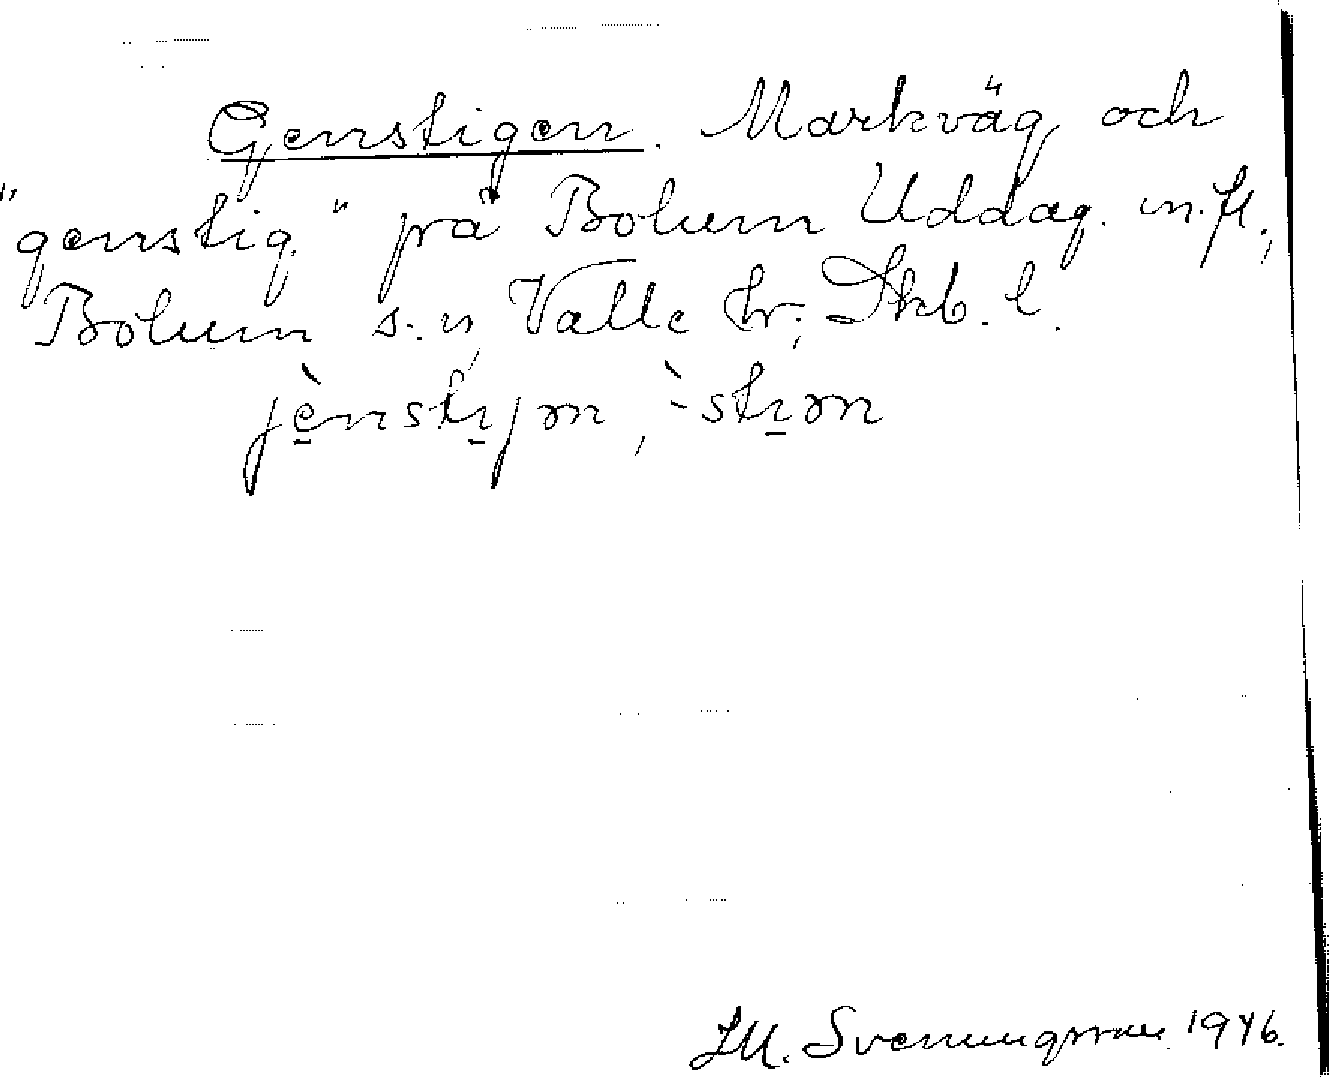 Genstigen. Markväg och
"genstig" på Bolum Uddag. m.fl.,
Bolum s:n, Valle hr; Skb. l.
jènstıjən, `-stıən
M. Svenungsson 1946.